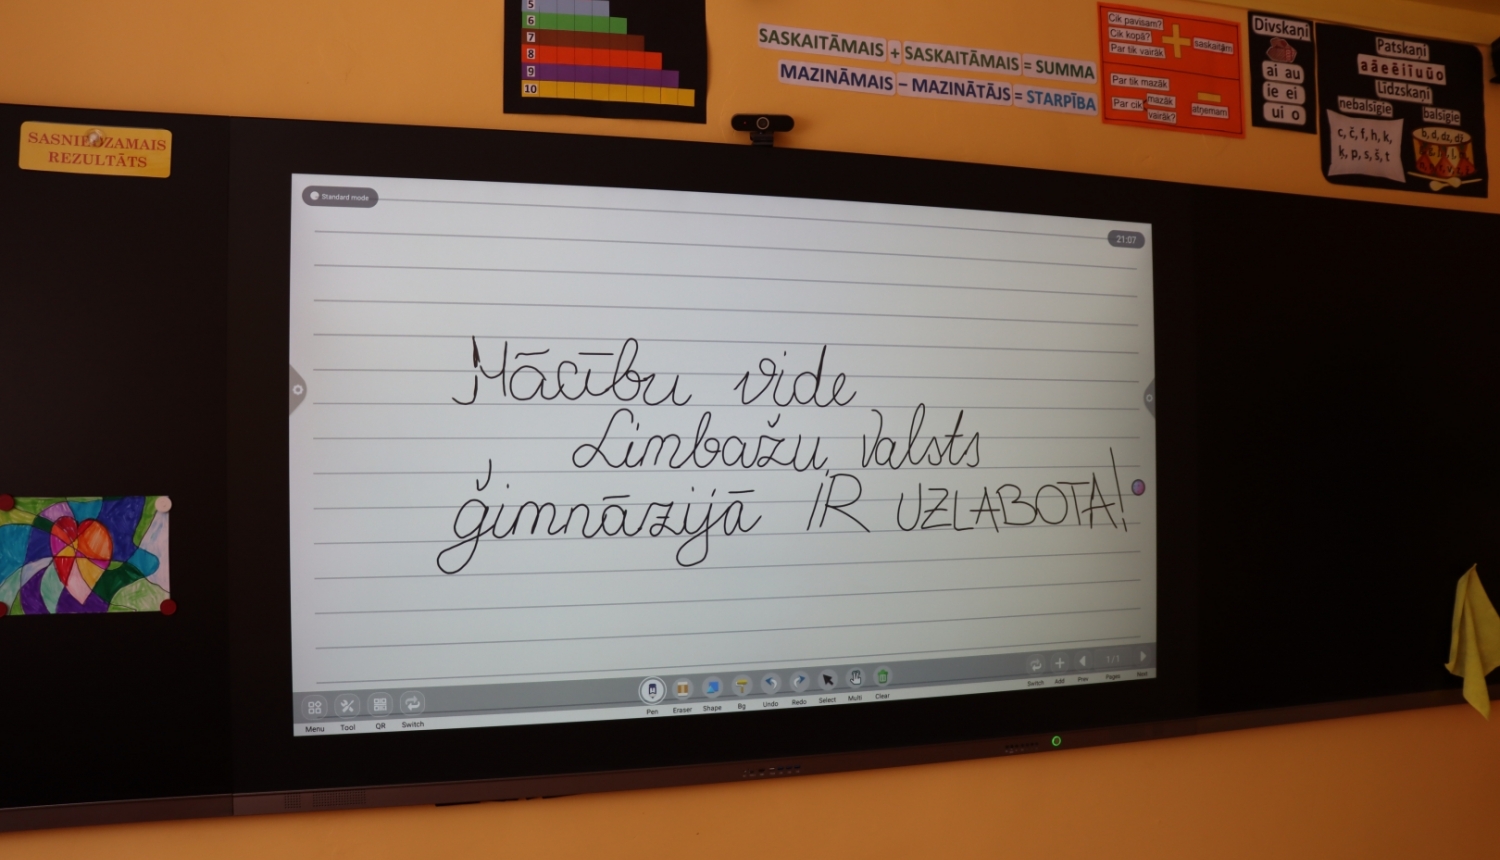 5
6
7
8
9
10
SASKAITĀMAIS + SASKAITĀMAIS = SUMMA
MAZINĀMAIS – MAZINĀTĀJS = STARPĪBA
Cik pavisam?
Cik kopā?
Par tik vairāk
+
saskaitām
Par tik mazāk
Par cik mazāk
vairāk?
–
atņemam
Divskaņi
ai au
ie ei
ui o
Patskaņi
a ā e ē i ī u ū o
Līdzskaņi
nebalsīgie
c, č, f, h, k,
ķ, p, s, š, t
balsīgie
b, d, dz, dž
SASNIEDZAMAIS
REZULTĀTS
Standard mode
21:07
Mācību vide
Limbažu Valsts
ģimnāzijā IR UZLABOTA!
Menu Tool QR Switch
Pen Eraser Shape Bg Undo Redo Select Multi Clear
1/1
Switch Add Prev Pages Next